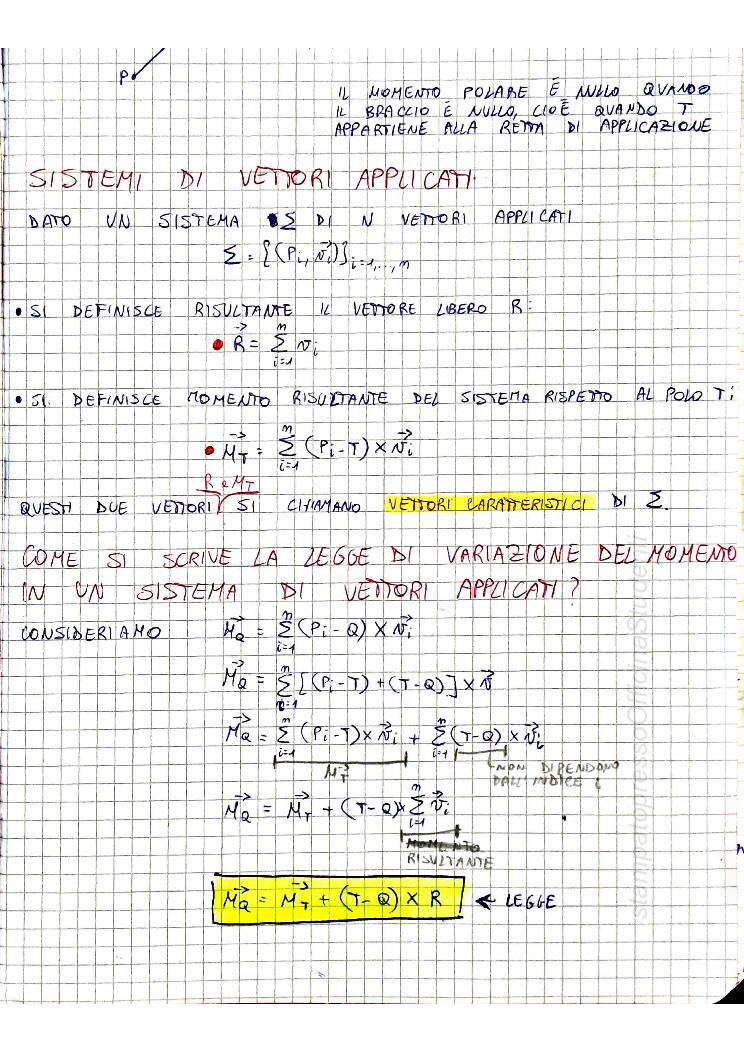 P
IL MOMENTO POLARE È NULLO QUANDO
IL BRACCIO È NULLO, CIOÈ QUANDO T
APPARTIENE ALLA RETTA DI APPLICAZIONE
SISTEMI DI VETTORI APPLICATI.
DATO UN SISTEMA Σ DI N VETTORI APPLICATI
Σ = {(Pᵢ, v⃗ᵢ)}ᵢ₌₁,...,ₙ
• SI DEFINISCE RISULTANTE IL VETTORE LIBERO R:
• R⃗ = Σᵢ₌₁ⁿ vᵢ
• SI. DEFINISCE MOMENTO RISULTANTE DEL SISTEMA RISPETTO AL POLO T:
• M⃗_T = Σᵢ₌₁ⁿ (Pᵢ - T) × v⃗ᵢ
R e M_T
QUESTI DUE VETTORI SI CHIAMANO VETTORI CARATTERISTICI DI Σ.
COME SI SCRIVE LA LEGGE DI VARIAZIONE DEL MOMENTO
IN UN SISTEMA DI VETTORI APPLICATI?
CONSIDERIAMO M⃗_Q = Σᵢ₌₁ⁿ (Pᵢ - Q) × v⃗ᵢ
M⃗_Q = Σᵢ₌₁ⁿ [(Pᵢ - T) + (T - Q)] × v⃗
M⃗_Q = Σᵢ₌₁ⁿ (Pᵢ - T) × v⃗ᵢ + Σᵢ₌₁ⁿ (T - Q) × v⃗ᵢ
M⃗_T
NON DIPENDONO
DALL'INDICE i
M⃗_Q = M⃗_T + (T - Q) × Σᵢ₌₁ⁿ v⃗ᵢ
MOMENTO
RISULTANTE
M⃗_Q = M⃗_T + (T - Q) × R ← LEGGE
stampatopressoOfficinaStudenti